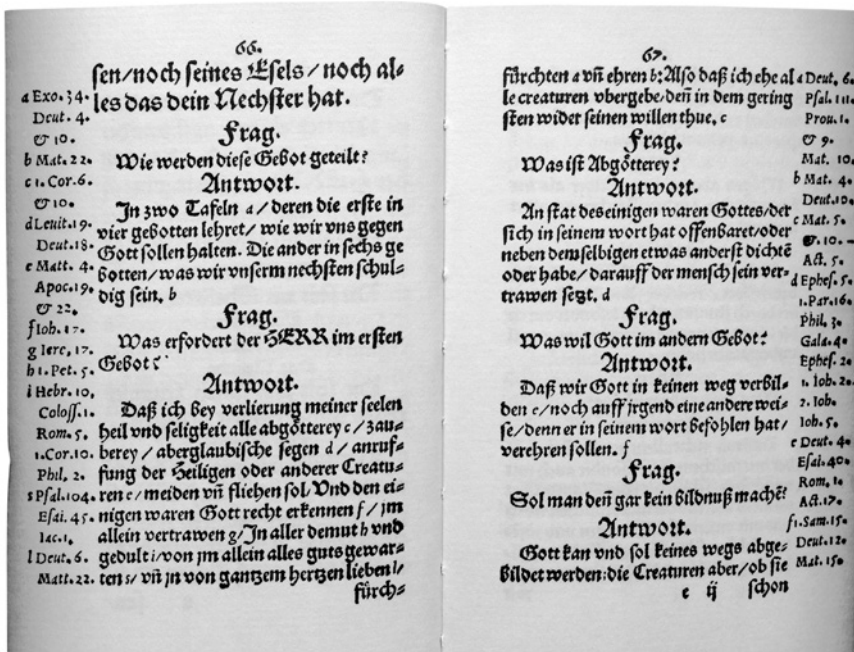 66.
sen/noch seines Esels/noch al=
les das dein Nechster hat.
Frag.
Wie werden diese Gebot geteilt?
Antwort.
In zwo Tafeln a/deren die erste in
vier gebotten lehret/wie wir vns gegen
Gott sollen halten. Die ander in sechs ge
botten/was wir vnserm nechsten schul=
dig sein. b
Frag.
Was erfordert der HERR im ersten
Gebot?
Antwort.
Daß ich bey verlierung meiner seelen
heil vnd seligkeit alle abgötterey c/zau=
berey/aberglaubische segen d/anruf=
fung der Heiligen oder anderer Creatu=
ren e/meiden vn̄ fliehen sol/Vnd den ei=
nigen waren Gott recht erkennen f/jm
allein vertrawen g/In aller demut h vnd
gedult i/von jm allein alles guts gewar=
ten s/vn̄ jn von gantzem hertzen lieben l/
fürch=
a Exo. 34.
Deut. 4.
& 10.
b Mat. 22.
c 1. Cor. 6.
& 10.
d Leuit. 19.
Deut. 18.
e Matt. 4.
Apoc. 19.
& 22.
f Ioh. 17.
g Iere. 17.
h 1. Pet. 5.
i Hebr. 10.
Coloss. 1.
Rom. 5.
1. Cor. 10.
Phil. 2.
s Psal. 104.
Esai. 45.
Iac. 1.
l Deut. 6.
Matt. 22.
67.
fürchten a vn̄ ehren b: Also daß ich ehe al
le creaturen vbergebe/den̄ in dem gering
sten wider seinen willen thue. c
Frag.
Was ist Abgötterey?
Antwort.
An stat des einigen waren Gottes/der
sich in seinem wort hat offenbaret/oder
neben demselbigen etwas anderst dichtē
oder habe/darauff der mensch sein ver=
trawen setzt. d
Frag.
Was wil Gott im andern Gebot?
Antwort.
Daß wir Gott in keinen weg verbil=
den e/noch auff jrgend eine andere wei=
se/denn er in seinem wort befohlen hat/
verehren sollen. f
Frag.
Sol man den̄ gar kein bildnuß machē?
Antwort.
Gott kan vnd sol keines wegs abge=
bildet werden: die Creaturen aber/ob sie
e ij schon
a Deut. 6.
Psal. 111.
Prou. 1.
& 9.
Mat. 10.
b Mat. 4.
Deut. 10.
c Mat. 5.
&. 10.
Act. 5.
d Ephes. 5.
1. Par. 16.
Phil. 3.
Gala. 4.
Ephes. 2.
1. Ioh. 2.
2. Ioh.
Ioh. 5.
e Deut. 4.
Esai. 40.
Rom. 1.
Act. 17.
f 1. Sam. 15.
Deut. 12.
Mat. 15.